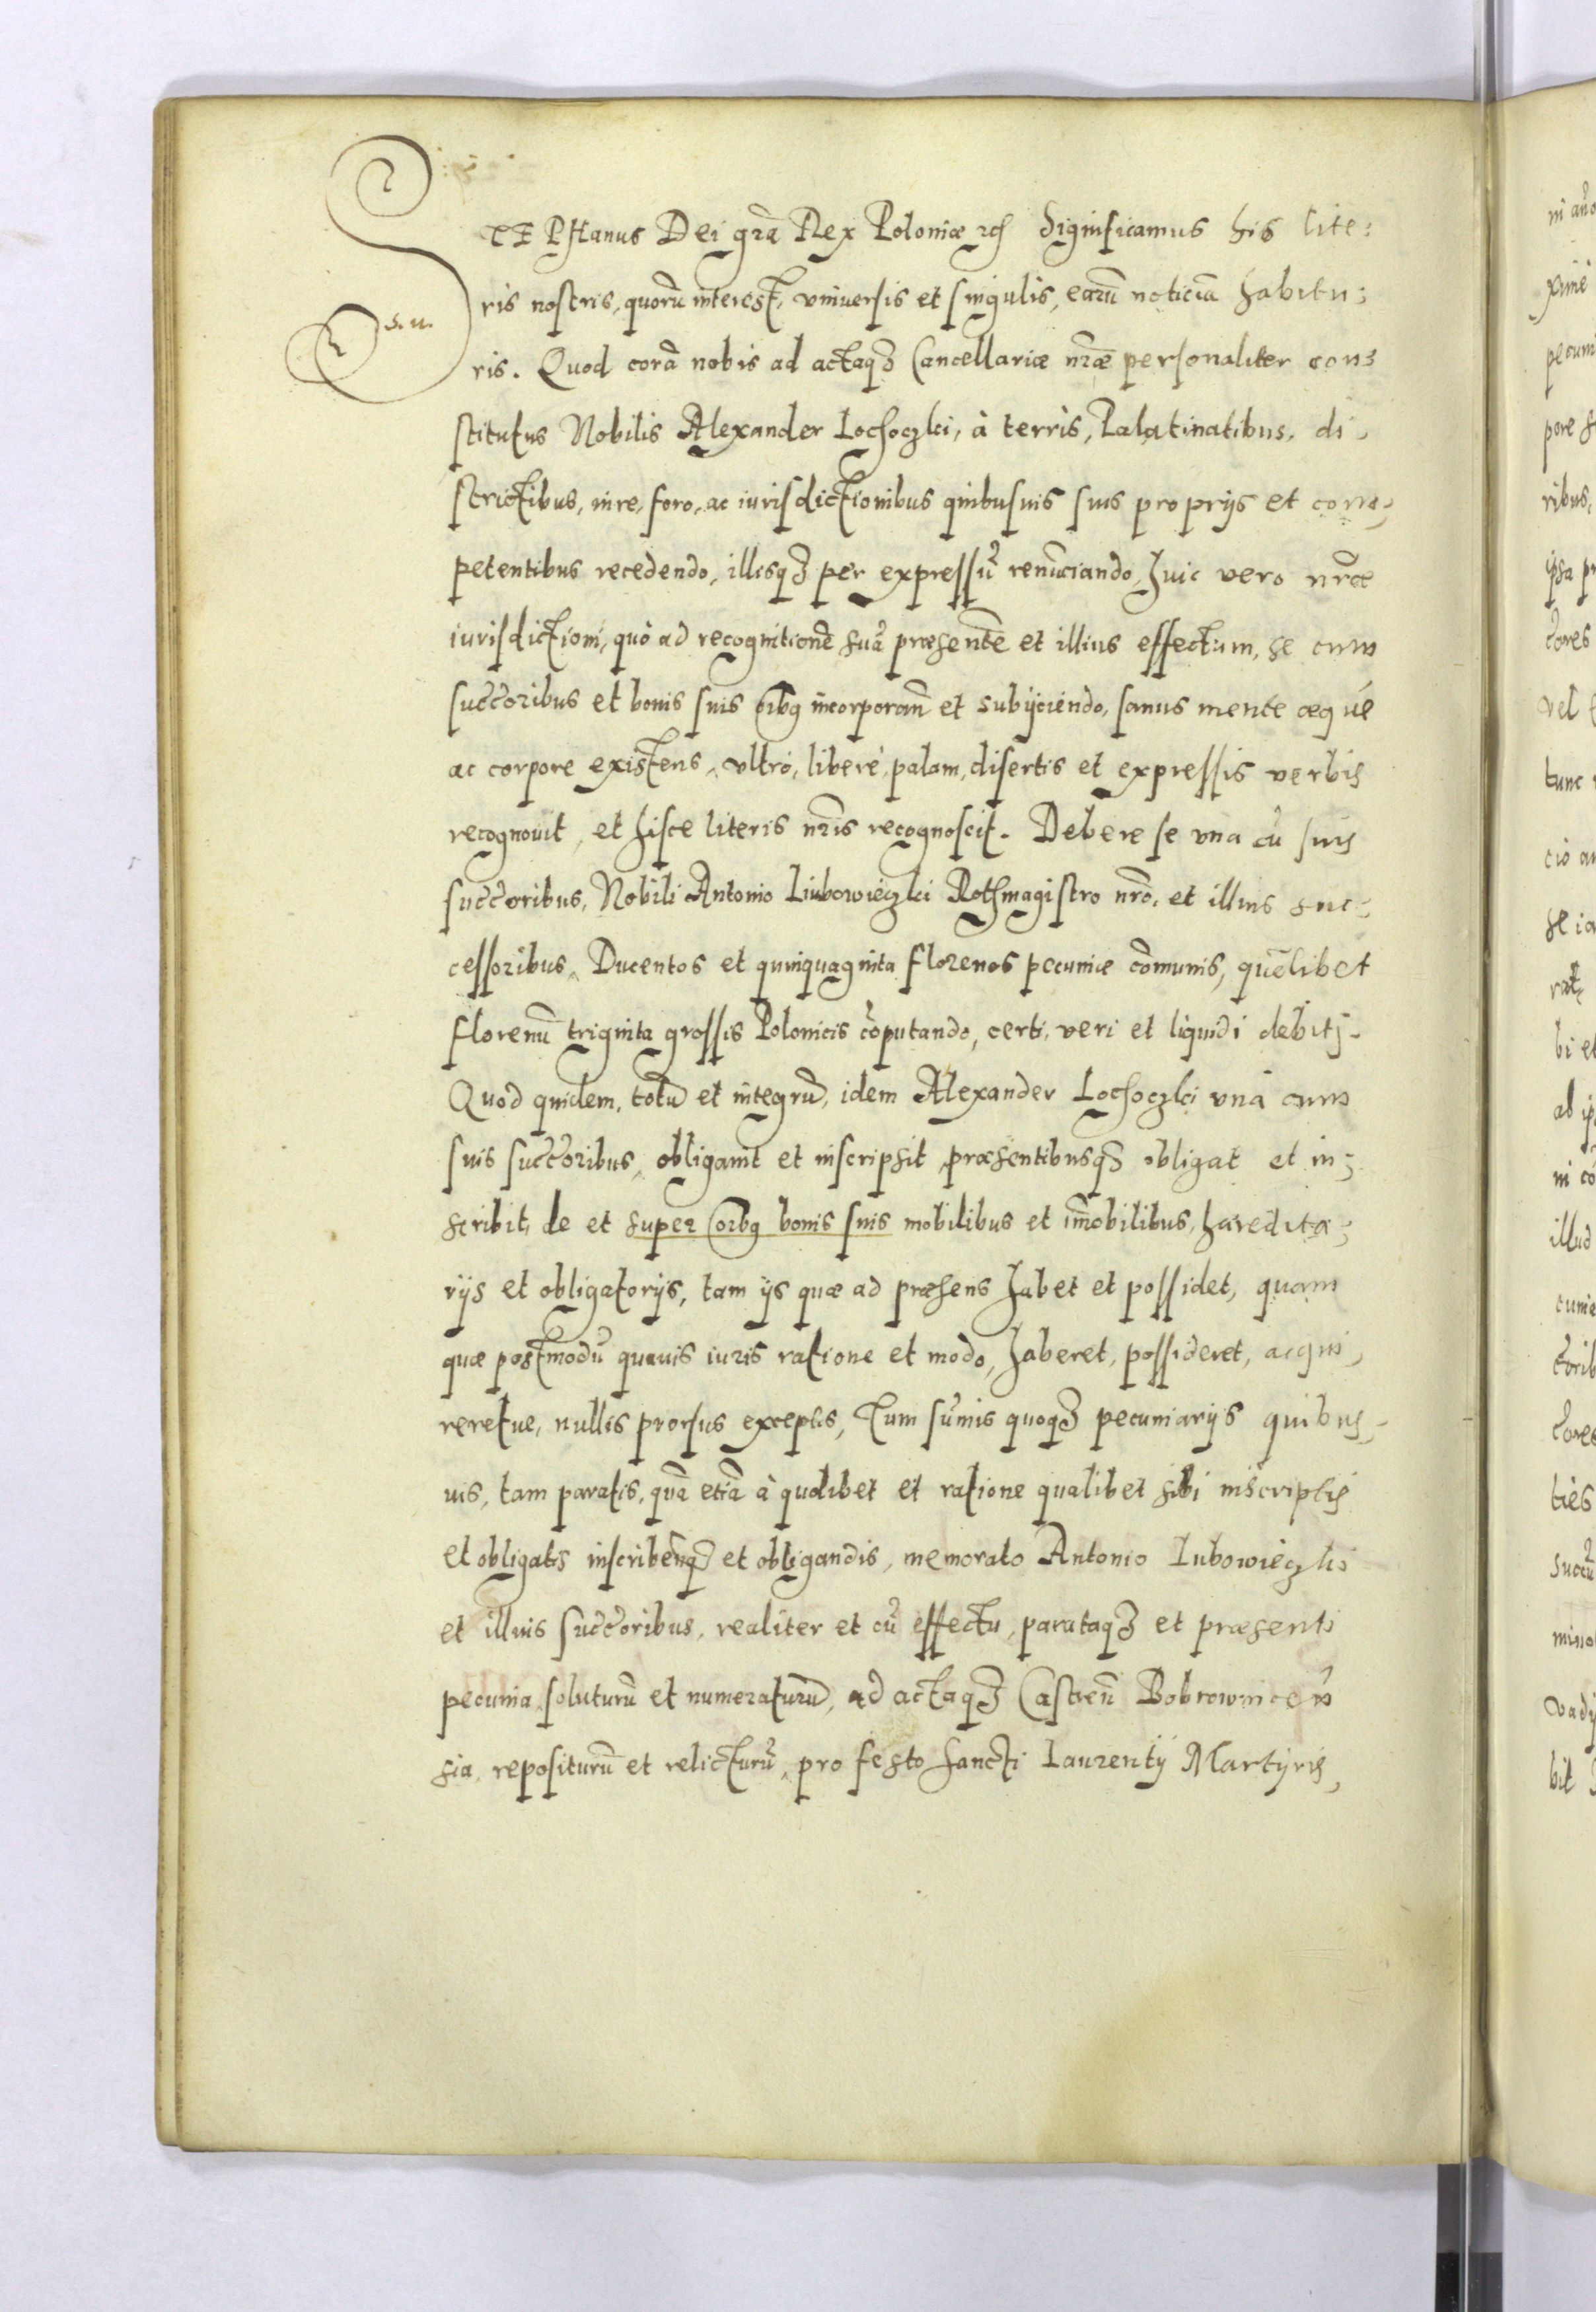 STEPHanus Dei gr̃a Rex Poloniæ etc̃ Significamus his lite:
ris nostris, quorũ interest, vniuersis et singulis, earũ noticiã habitu:
s. n.
ris. Quod corã nobis ad actaq3 Cancellariæ nr̃æ personaliter con:
stitutus Nobilis Alexander Lochoczki, à terris, Palatinatibus, di,
strictibus, iure, foro, ac iurisdictionibus quibusuis suis proprijs et com,
petentibus recedendo, illisq3 per expressũ renũciando, huic vero nr̃æ
iurisdictioni, quò ad recognitionẽ suã præsentẽ et illius effectum, se cum
succ̃oribus et bonis suis oĩbq incorporan̄ et subijciendo, sanus mente æquè
ac corpore existens, vltrò, liberè, palam, disertis et expressis verbis
recognouit, et hisce literis nr̃is recognoscit. Debere se vna cũ suis
succ̃oribus, Nobili Antonio Liubowieczki Rothmagistro nr̃o, et illius suc:
cessoribus, Ducentos et quinquaginta florenos pecuniæ cõmunis, quẽlibet
florenũ triginta grossis Polonicis cõputando, certi, veri et liquidi debitj.
Quod quidem, totũ et integrũ, idem Alexander Lochoczki vnà cum
suis succ̃oribus, obligauit et inscripsit, præsentibusq3 obligat et in:
scribit, de et super oĩbq bonis suis mobilibus et im̃obilibus, hæredita:
rijs et obligatorijs, tam ijs quæ ad præsens habet et possidet, quam
quæ postmodũ quauis iuris ratione et modo, haberet, possideret, acqui,
reretue, nullis prorsus exceptis, Tum sum̃is quoq3 pecuniarijs quibus,
uis, tam paratis, quã etiã à quolibet et ratione qualibet sibi inscriptis
et obligatis inscribẽnq3 et obligandis, memorato Antonio Lubowieczki
et illius succ̃oribus, realiter et cũ effectu, parataq3 et præsenti
pecunia soluturũ et numeraturũ, ad actaq3 Castreñ Bobrownicen̄
sia, repositurũ et relicturũ, pro festo Sancti Laurentij Martyris,